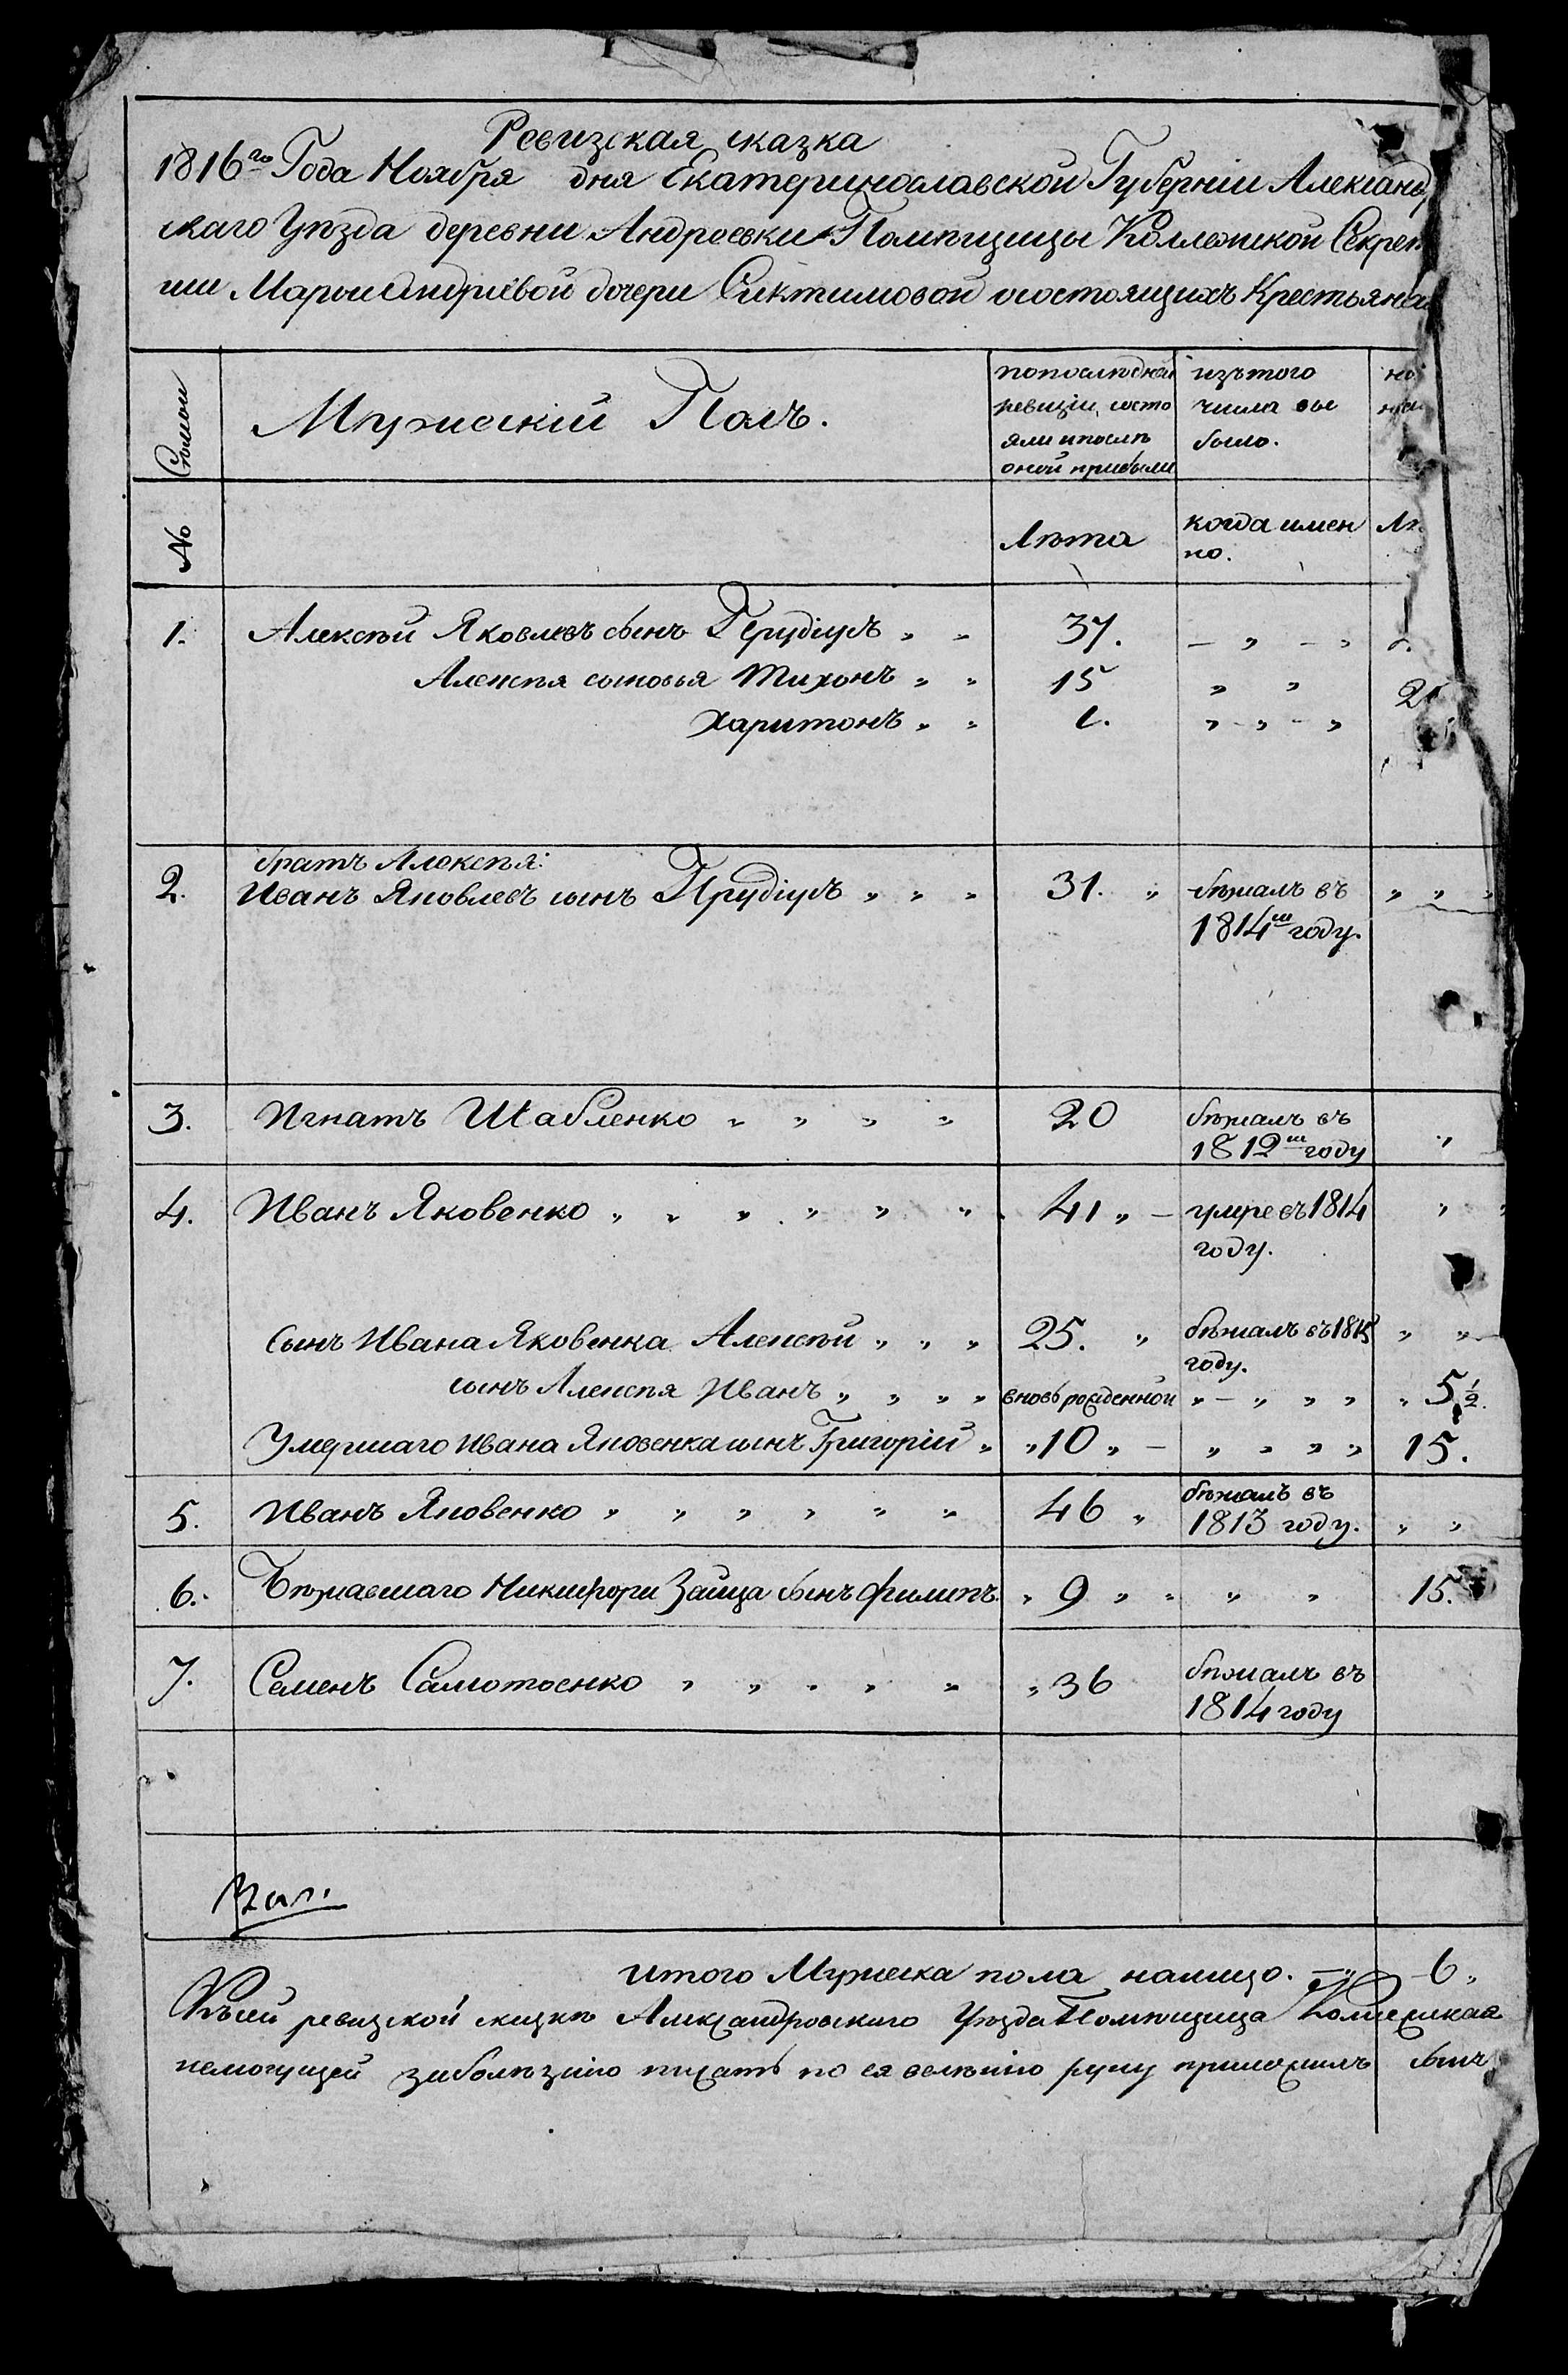 Ревизская сказка
1816го Года Ноября дня Екатеринославской Губернiи Александ
скаго Уѣзда деревни Андреевки Помѣщицы Коллежской Секрет
ши Марьи Андрѣевой дочери осостоящихъ Крестьянехъ
Мужескiй Полъ.
попослѣдней ревизiи состо яли ипослѣ оной прибыли
изътого числа вы было.
№
Лѣта
когда имен но.
Лѣ
1. Алексѣй Яковлевъ сынъ „ „ 37. – „ – „
Алексѣя сыновья Тихонъ „ „ 15 „ „
Харитонъ „ „ 1. „ – „ – „
братъ Алексѣя:
2. Иванъ Яковлевъ сынъ „ „ „ 31. „ бѣжалъ въ „ „ „
1814м году.
3. Игнатъ Шабленко „ „ „ „ 20 бѣжалъ въ „
1812м году
4. Иванъ Яковенко „ „ „ „ „ „ 41 „ – умре въ 1814 „ „
году.
сынъ Ивана Яковенка Алексѣй „ „ „ 25. „ бѣжалъ въ 1815 „ „
году.
сынъ Алексѣя Иванъ „ „ „ „ вновь рожденной „ – „ „ „ „ 5 1/2.
Умершаго Ивана Яковенка сынъ Григорiй „ „ 10 „ – „ „ „ „ 15.
5. Иванъ Яковенко „ „ „ „ „ „ 46 „ бѣжалъ въ
1813 году. „ „
6. Бѣжавшаго Никифора Зайца сынъ Филипъ. „ 9 „ „ „ „ 15.
7. Семенъ Самотоенко „ „ „ „ „ „ 36 бѣжалъ въ
1814 году
итого Мужеска пола налицо. – 6„
Къ сей ревизской сказкѣ Александровскаго Уѣзда Помѣщица Коллежская
немогущей заболѣзнiю писать по ея велѣнiю руку приложилъ сынъ